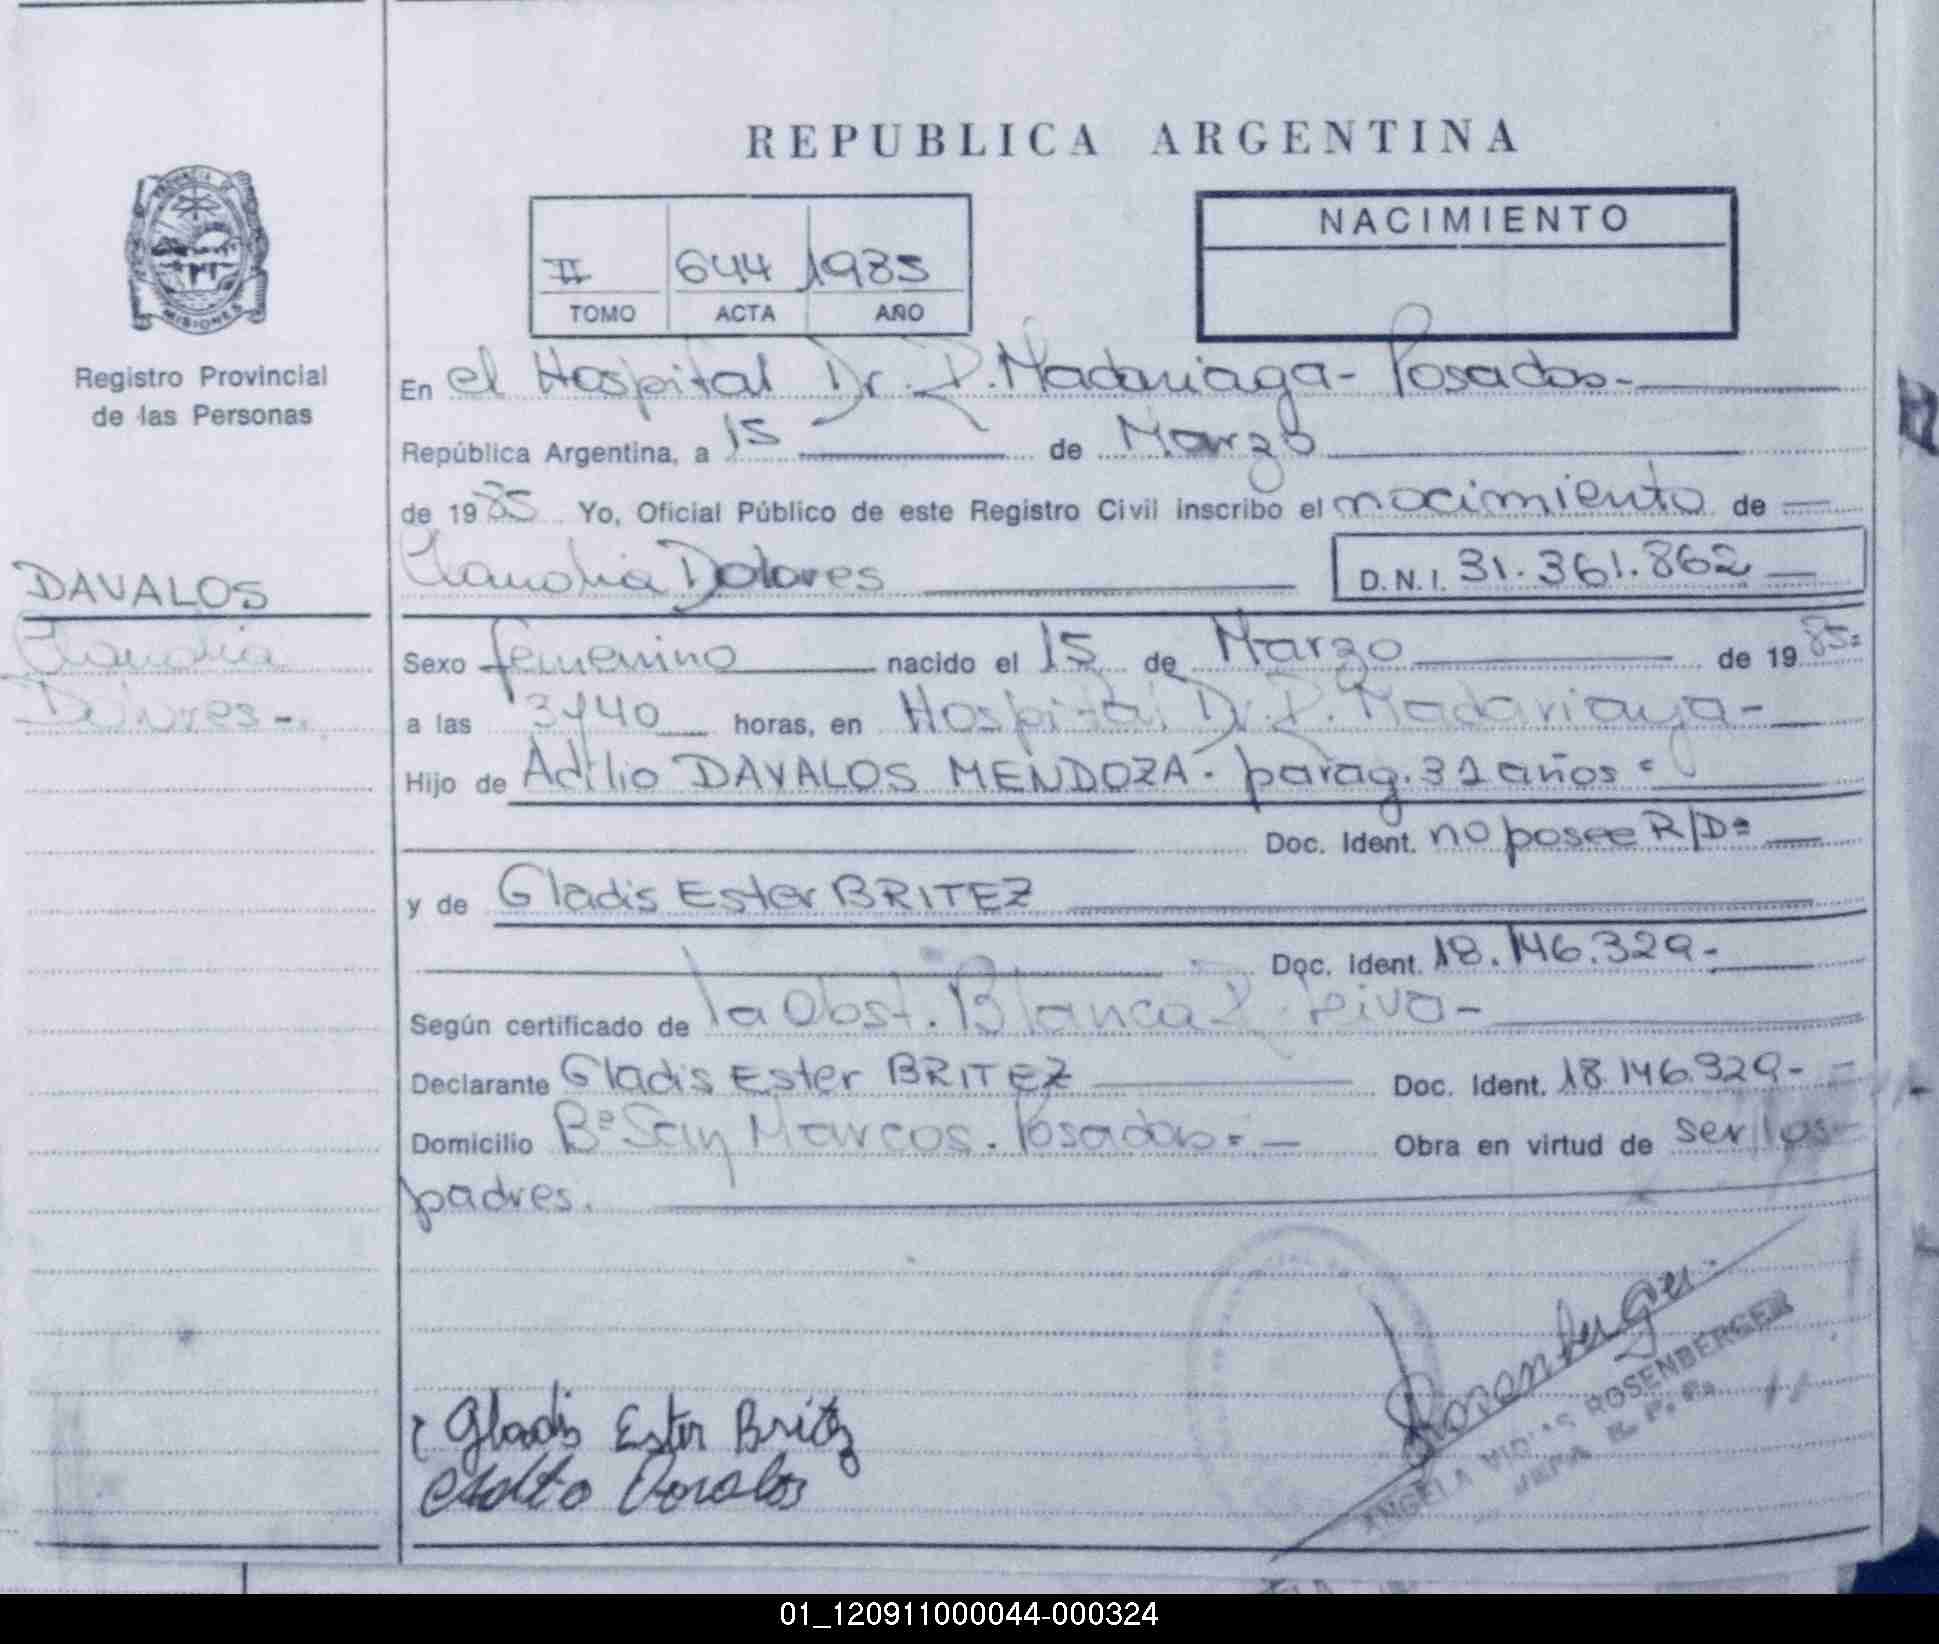 REPUBLICA ARGENTINA
PROVINCIA DE
MISIONES
Registro Provincial
de las Personas
II 644 1985
TOMO ACTA AÑO
NACIMIENTO
En el Hospital Dr. R. Madariaga - Posadas.-
República Argentina, a 15 de Marzo
de 1985 Yo, Oficial Público de este Registro Civil inscribo el nacimiento de
Claudia Dolores D.N.I. 31.361.862
DAVALOS
Claudia
Dolores-.
Sexo femenino nacido el 15 de Marzo de 1985=
a las 3y40 horas, en Hospital Dr. R. Madariaga-
Hijo de Adilio DAVALOS MENDOZA. parag. 31 años=
Doc. Ident. no posee R/D=
y de Gladis Ester BRITEZ
Doc. Ident. 18.146.329.-
Según certificado de la Obst. Blanca R. Leiva-
Declarante Gladis Ester BRITEZ Doc. Ident. 18.146.329.-
Domicilio Bº San Marcos. Posadas= Obra en virtud de ser los
padres.
Gladis Ester Britez
Davalos
Rosenberger
ANGELA ROSENBERGER
JEFA R. P. P.
01_120911000044-000324